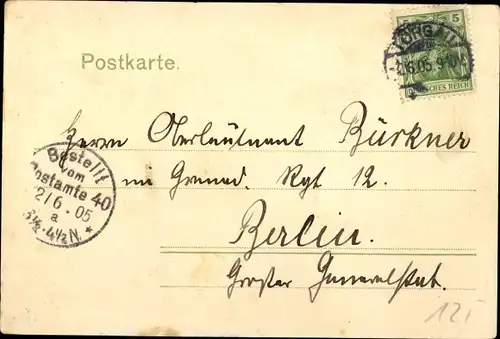 Postkarte.
5 5
TORGAU
-2.6.05. 9-10V.
DEUTSCHES REICH
Herrn Oberleutnant Bürkner
im Grenad. Rgt 12.
Berlin.
Großer Generalstab.
Bestellt
vom
Postamte 40
2/6.05
a
3½-4½N.
*
12,-